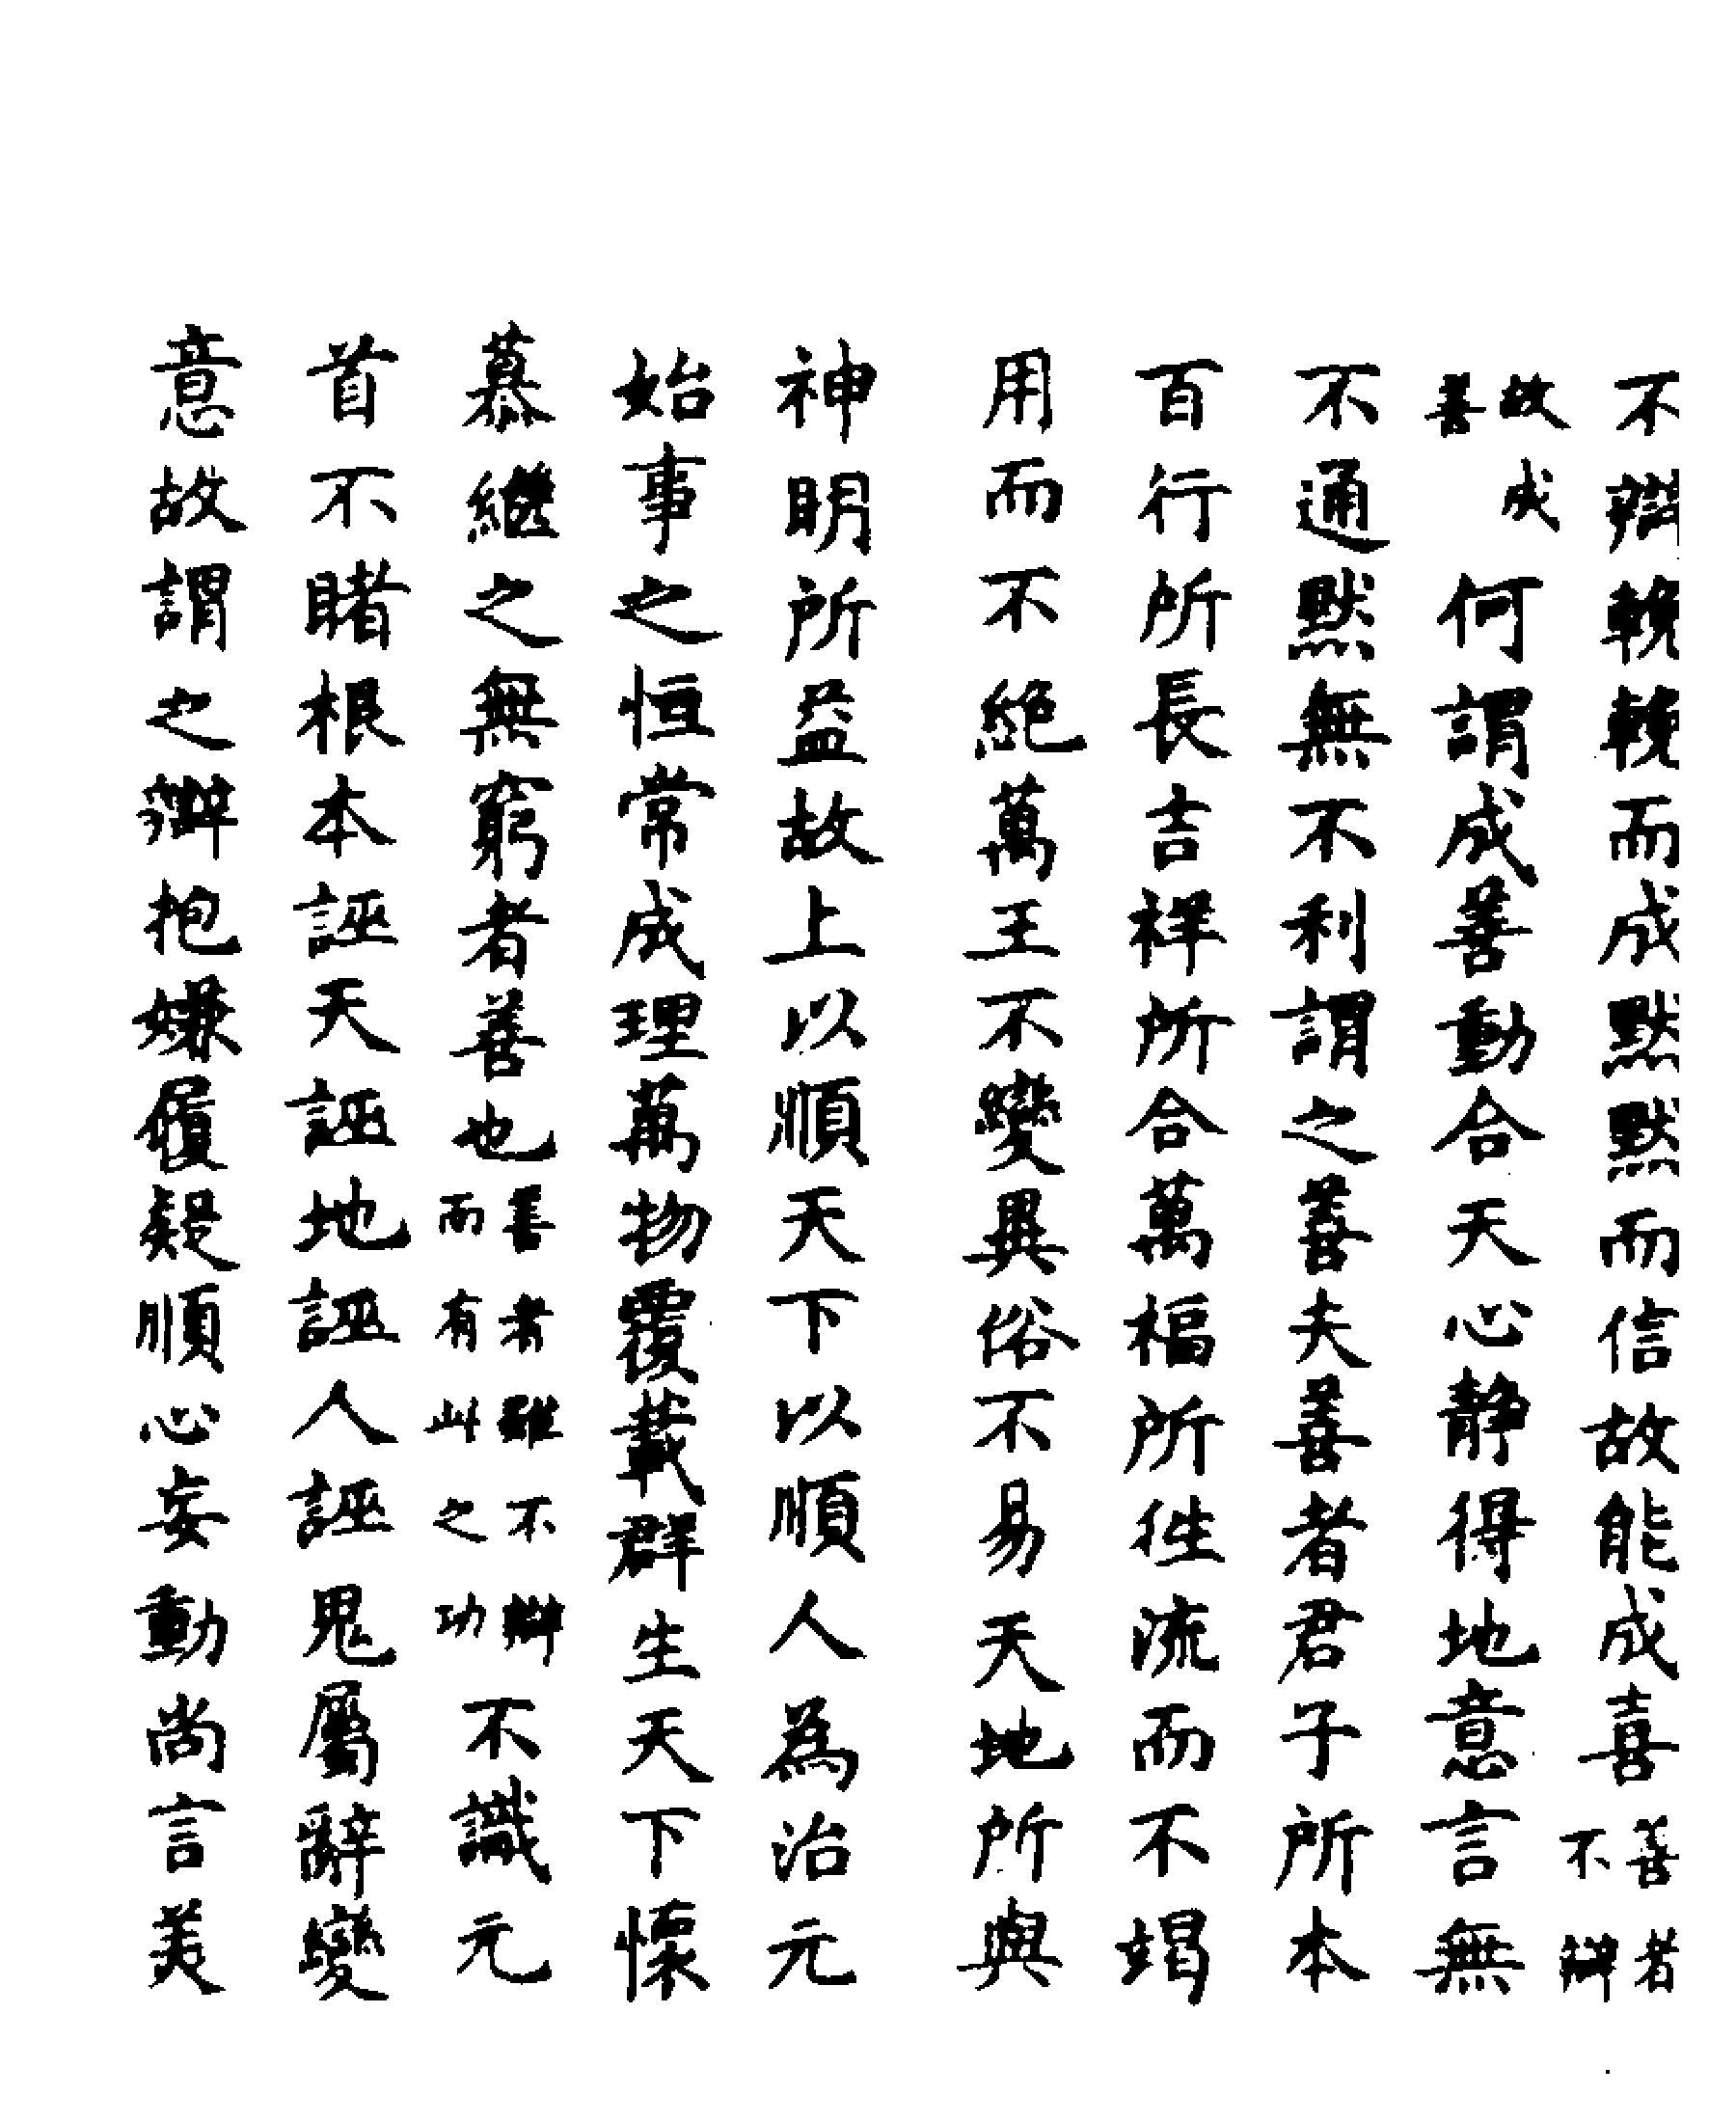 不辯輓輓而成默默而信故能成喜善者不辯
故成善何謂成善動合天心静得地意言無
不通默無不利謂之善夫善者君子所本
百行所長吉祥所合萬福所徃流而不竭
用而不絶萬王不變異俗不易天地所與
神明所益故上以順天下以順人為治元
始事之恒常成理萬物覆載群生天下懷
慕繼之無窮者善也善者雖不辯而有此之功不識元
首不睹根本誣天誣地誣人誣鬼屬辭變
意故謂之辯抱嫌履疑順心妄動尚言美